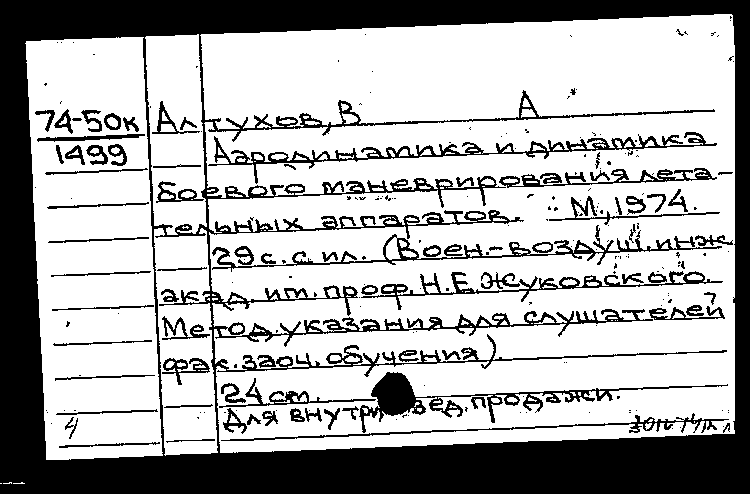 74-50к Алтухов, В А
1499 Аэродинамика и динамика
боевого маневрирования лета-
тельных аппаратов. М., 1974.
29 с. с ил. (Воен.-воздуш. инж
акад. им. проф. Н.Е. Жуковского.
Метод. указания для слушателей
фак. заоч. обучения)
24 см.
Для внутривед. продажи.
4